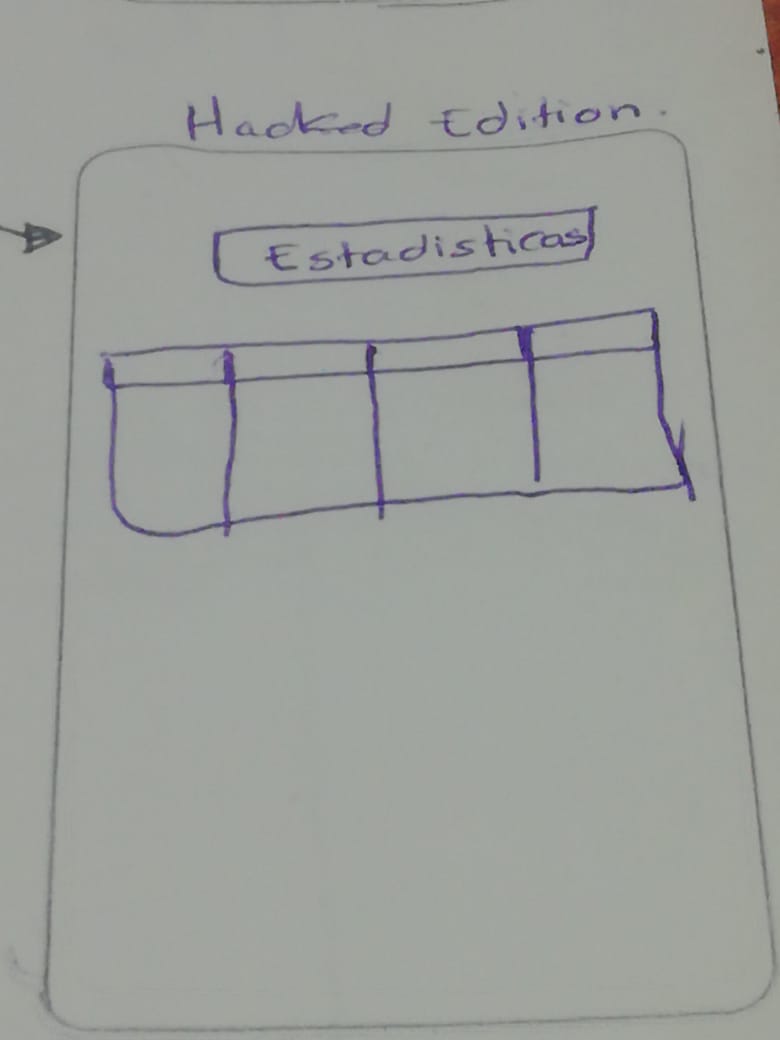 Hacked Edition.
Estadisticas